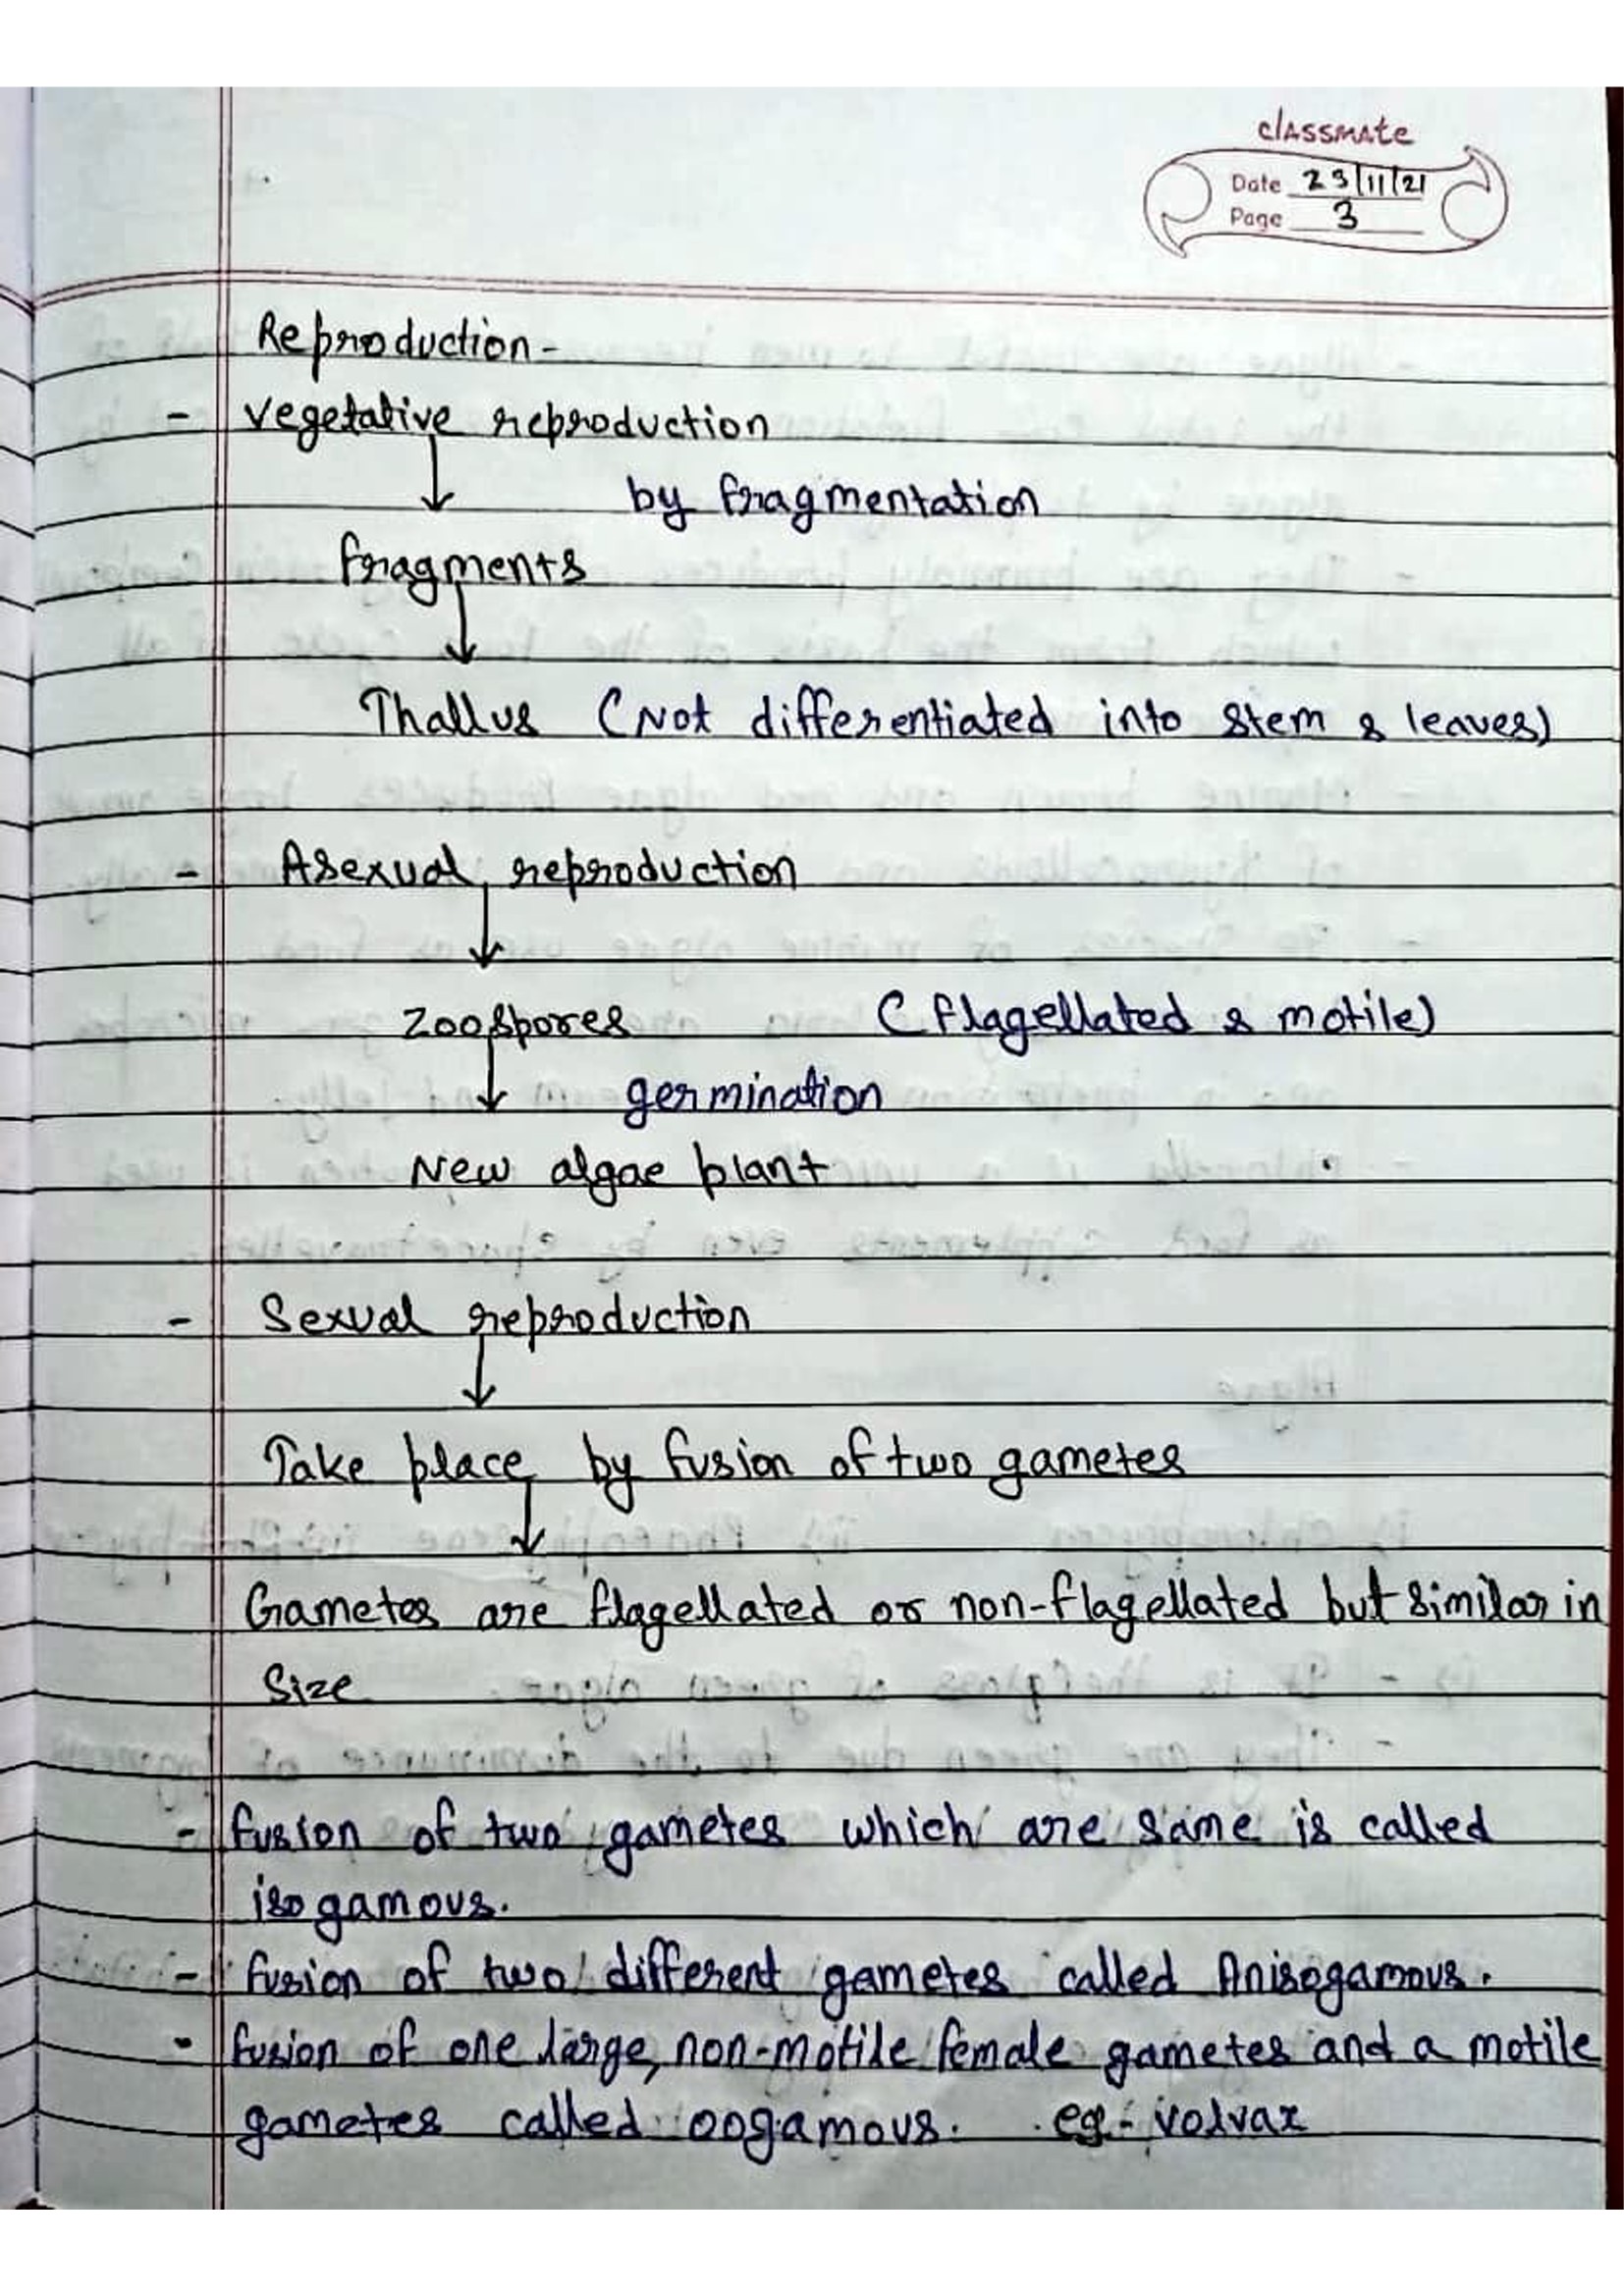 classmate
Date 23/11/21
Page 3
Reproduction-
- Vegetative reproduction
by fragmentation
fragments
Thallus (Not differentiated into stem & leaves)
- Asexual reproduction
Zoospores (flagellated & motile)
germination
New algae plant
- Sexual reproduction
Take place by fusion of two gametes
Gametes are flagellated or non-flagellated but similar in
Size
- fusion of two gametes which are same is called
isogamous.
- fusion of two different gametes called Anisogamous.
- fusion of one large, non-motile female gametes and a motile
gametes called oogamous. eg:- volvax